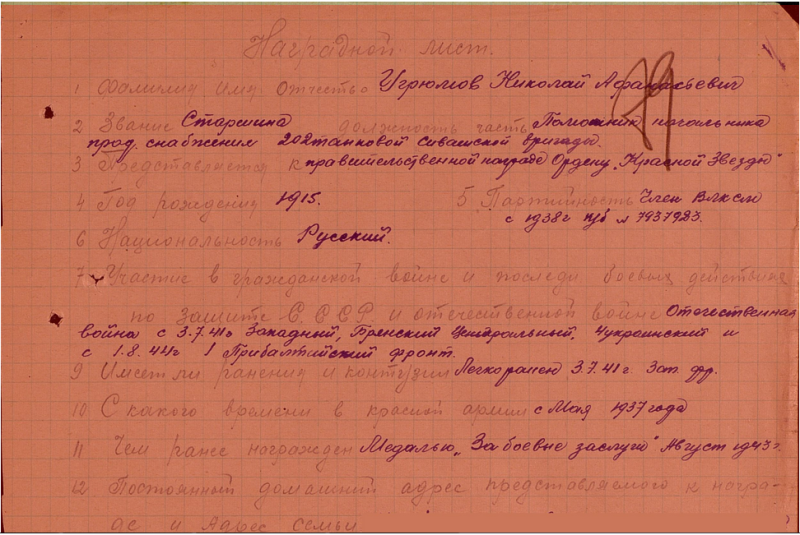 Наградной лист.
1 Фамилия Имя Отчество Угрюмов Николай Афанасьевич
2 Звание Старшина должность часть Помошник начальника
прод. снабжения 202 танковой Сивашской бригады.
3 Представляется к правительственной награде Ордену „Красной Звезды"
4 Год рождения 1915. 5 Партийность Член Влксм
с 1938г п/б № 7937983.
6 Национальность Русский.
7 Участие в гражданской войне и последи боевых действие
по защите С.С.С.Р. и отечественной войне Отечественная
война с 3.7.41г Западный, Брянский Центральный. 1украинский и
с 1.8.44г 1 Прибалтийский фронт.
9 Имеет ли ранения и контузии Легко ранен 3.7.41г Зап. фр.
10 С какого времени в красной армии с Мая 1937 года
11 Чем ранее награжден Медалью „За боевые заслуги" Август 1943г.
12 Постоянный домашний адрес представляемого к награ-
де и Адрес семьи